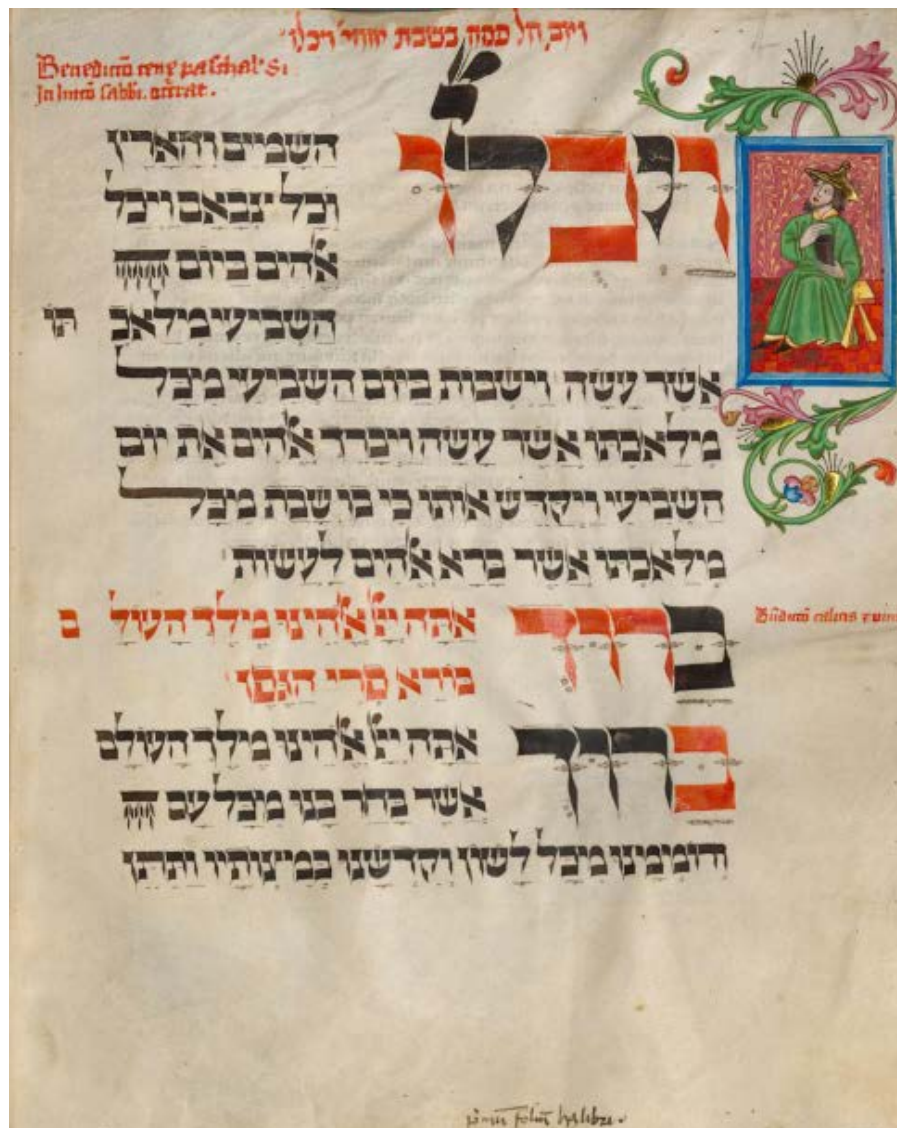 ואם חל פסח בשבת ויכלו
Benedictō cene paschal' Si
In sabb.
ויכלו השמים והארץ
וכל צבאם ויכל
אלהים ביום
השביעי מלאכ תו
אשר עשה וישבות ביום השביעי מכל
מלאכתו אשר עשה ויברך אלהים את יום
השביעי ויקדש אותו כי בו שבת מכל
מלאכתו אשר ברא אלהים לעשות
ברוך אתה ייי אלהינו מלך העול ם
בורא פרי הגפן
ברוך אתה ייי אלהינו מלך העולם
אשר בחר בנו מכל עם
ורוממנו מכל לשון וקדשנו במצותיו ותתן